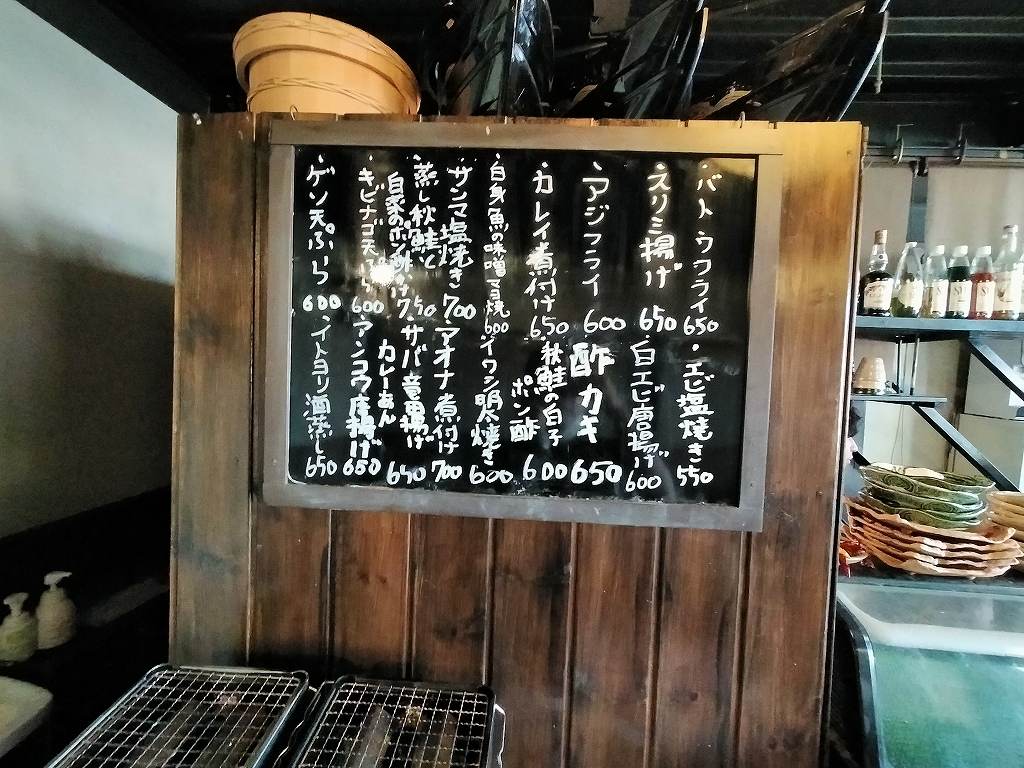 ・バトウフライ 650
・スリミ揚げ 650
・アジフライ 600
・カレイ煮付け 650
・白身魚の味噌マヨ焼 600
・サンマ塩焼き 700
・蒸し秋鮭と
白菜のポン酢
750
・キビナゴ天ぷら 600
・ゲソ天ぷら 600
・エビ塩焼き 550
・白エビ唐揚げ 600
酢カキ 650
・秋鮭の白子
ポン酢
600
・イワシ明太焼き 600
・アオナ煮付け 700
・サバ竜田揚げ
カレーあん
650
・アンコウ唐揚げ 650
・イトヨリ酒蒸し 650